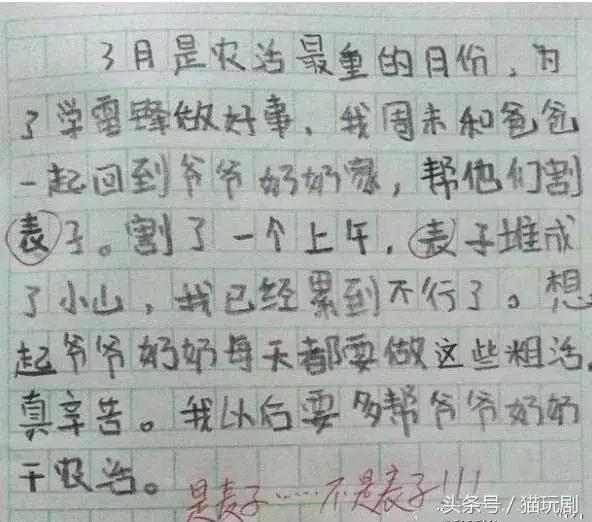 3月是农活最重的月份，为
了学雷锋做好事，我周末和爸爸
一起回到爷爷奶奶家，帮他们割
表子。割了一个上午，表子堆成
了小山，我已经累到不行了。想
起爷爷奶奶每天都要做这些粗活，
真辛苦。我以后要多帮爷爷奶奶
干农活。
是麦子……不是表子!!!
头条号 / 猫玩剧